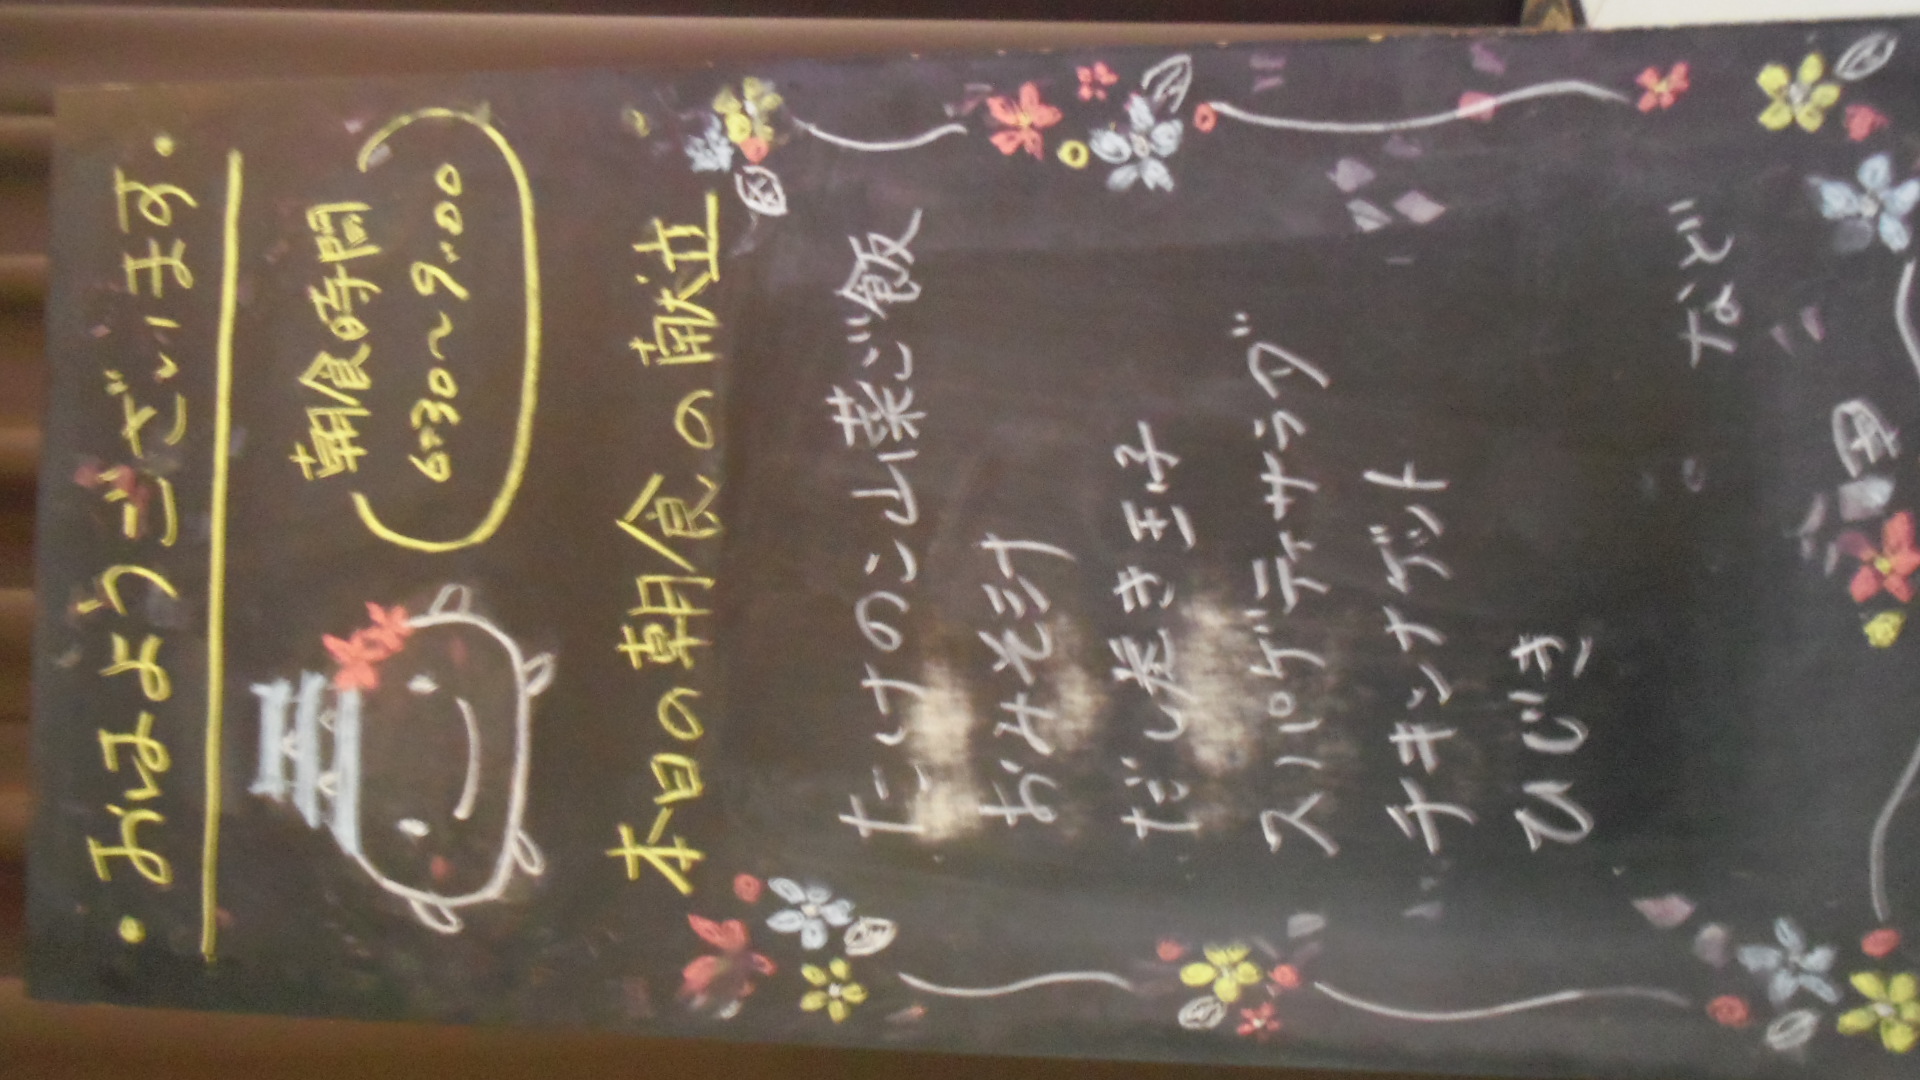 ・おはようございます・
朝食時間
6:30〜9:00
本日の朝食の献立
たけのこ山菜ご飯
おみそ汁
だし巻き玉子
スパゲティサラダ
チキンナゲット
ひじき
など